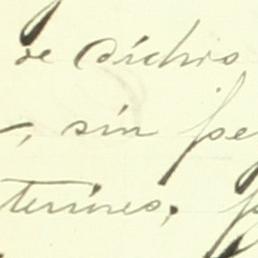 de dicho
, sin pe
terines;